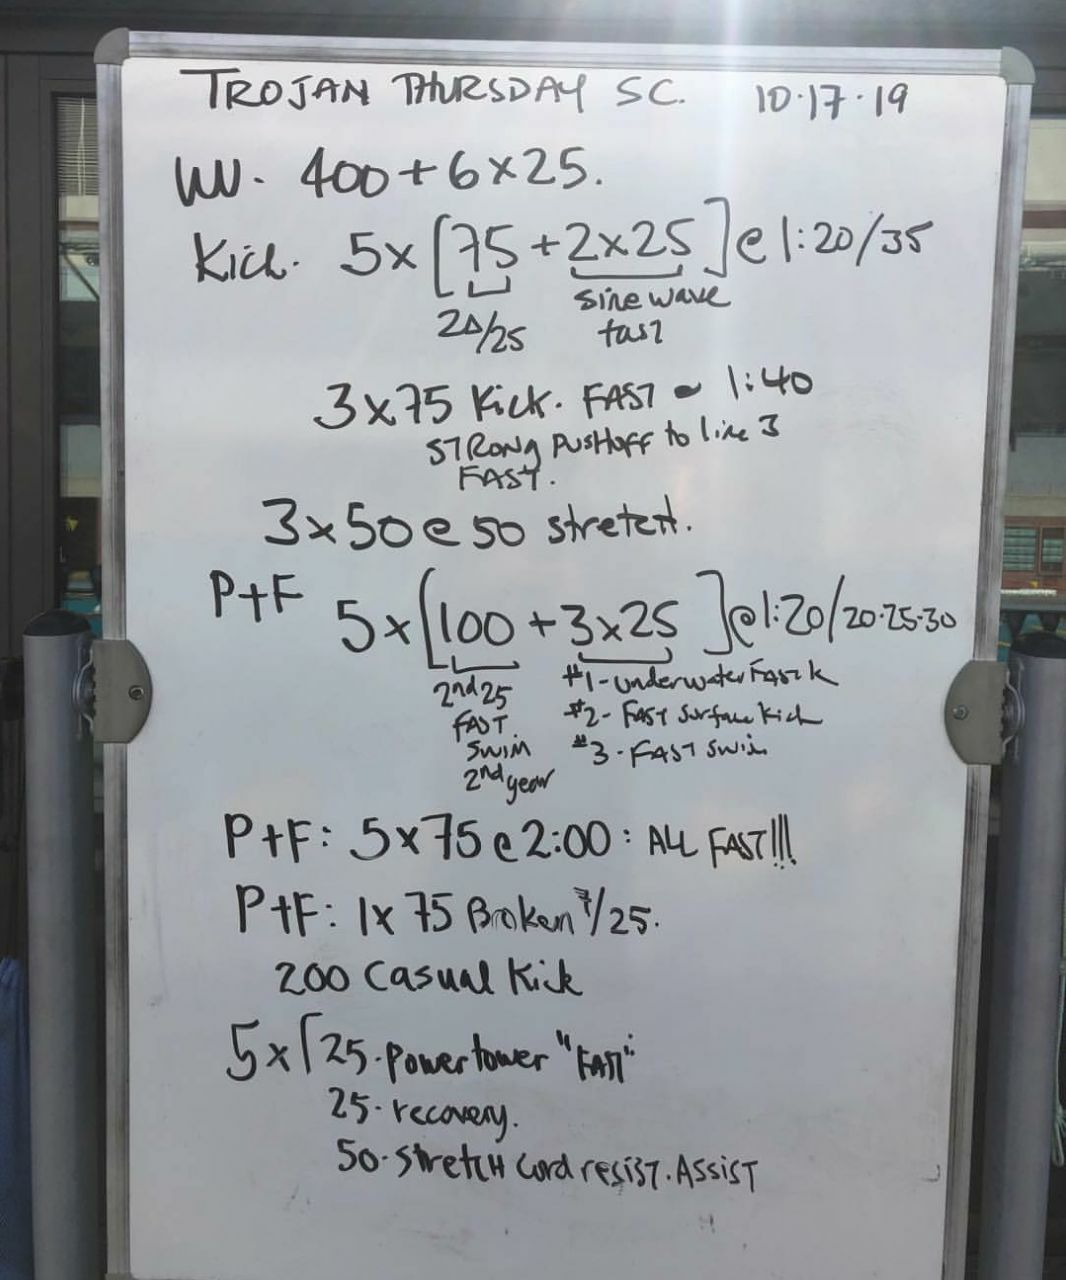 TROJAN THURSDAY SC. 10.17.19
WU. 400+6x25.
Kick. 5x[75+2x25]@1:20/35
2Δ/25
sine wave
fast
3x75 Kick. FAST - 1:40
STRONG PUSHOFF to line 3
FAST.
3x50@50 stretch.
P+F 5x[100+3x25]@1:20/20.25.30
2nd 25
FAST
SWIM
2nd gear
#1-underwater FAST K
#2-FAST Surface Kick
#3-FAST Swim
P+F: 5x75@2:00: ALL FAST!!!
P+F: 1x75 Broken /25.
200 Casual Kick
5x[25.power tower "FAST"
25.recovery.
50.stretch cord resist.Assist